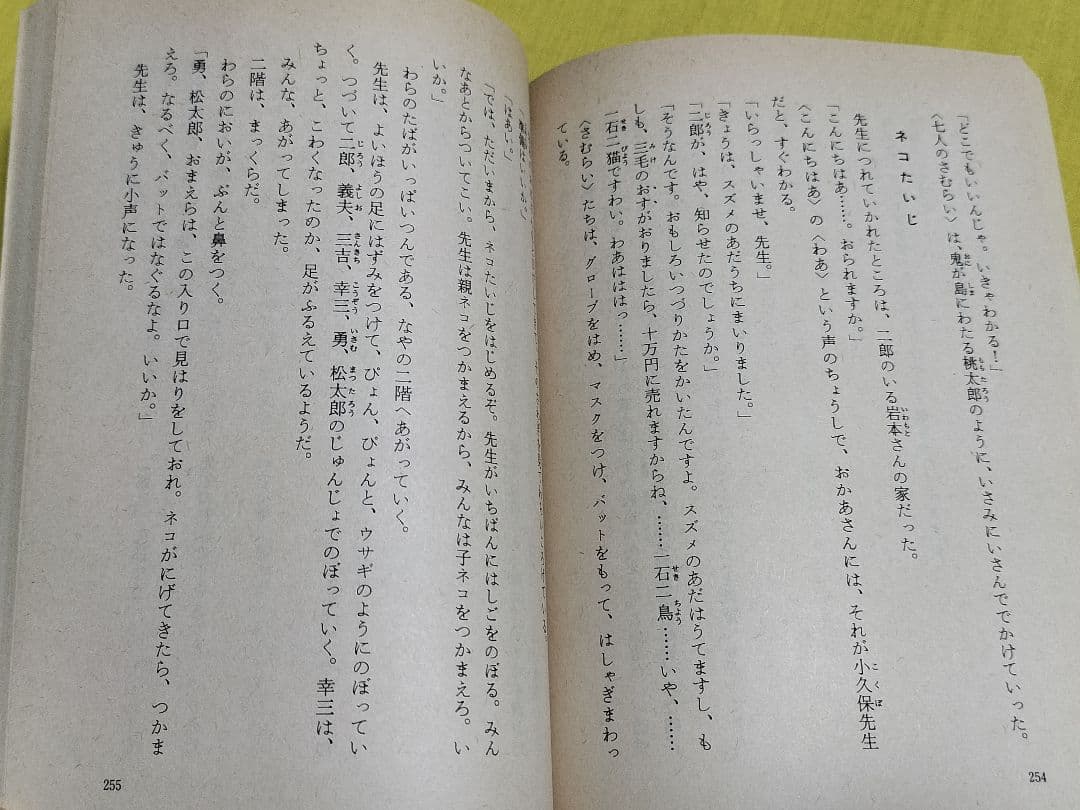 「どこでもいいんじゃ。いきゃわかる！」
〈七人のさむらい〉は、鬼が島にわたる桃太郎のように、いさみにいさんででかけていった。
ネコたいじ
先生につれていかれたところは、二郎のいる岩本さんの家だった。
「こんにちはあ……。おられますか。」
〈こんにちはあ〉の〈わあ〉という声のちょうしで、おかあさんには、それが小久保先生
だと、すぐわかる。
「いらっしゃいませ、先生。」
「きょうは、スズメのあだうちにまいりました。」
「二郎が、はや、知らせたのでしょうか。」
「そうなんです。おもしろいつづりかたをかいたんですよ。スズメのあだはうてますし、も
しも、三毛のおすがおりましたら、十万円に売れますからね、……一石二鳥……いや、……
一石二猫ですわい。わあははは……」
〈さむらい〉たちは、グローブをはめ、マスクをつけ、バットをもって、はしゃぎまわっ
ている。
254
「はあい。」
「では、ただいまから、ネコたいじをはじめるぞ。先生がいちばんにはしごをのぼる。みん
なあとからついてこい。先生は親ネコをつかまえるから、みんなは子ネコをつかまえろ。い
いか。」
わらのたばがいっぱいつんである、なやの二階へあがっていく。
先生は、よいほうの足にはずみをつけて、ぴょん、ぴょんと、ウサギのようにのぼってい
く。つづいて二郎、義夫、三吉、幸三、勇、松太郎のじゅんじょでのぼっていく。幸三は、
ちょっと、こわくなったのか、足がふるえているようだ。
みんな、あがってしまった。
二階は、まっくらだ。
わらのにおいが、ぷんと鼻をつく。
「勇、松太郎、おまえらは、この入り口で見はりをしておれ。ネコがにげてきたら、つかま
えろ。なるべく、バットではなぐるなよ。いいか。」
先生は、きゅうに小声になった。
255